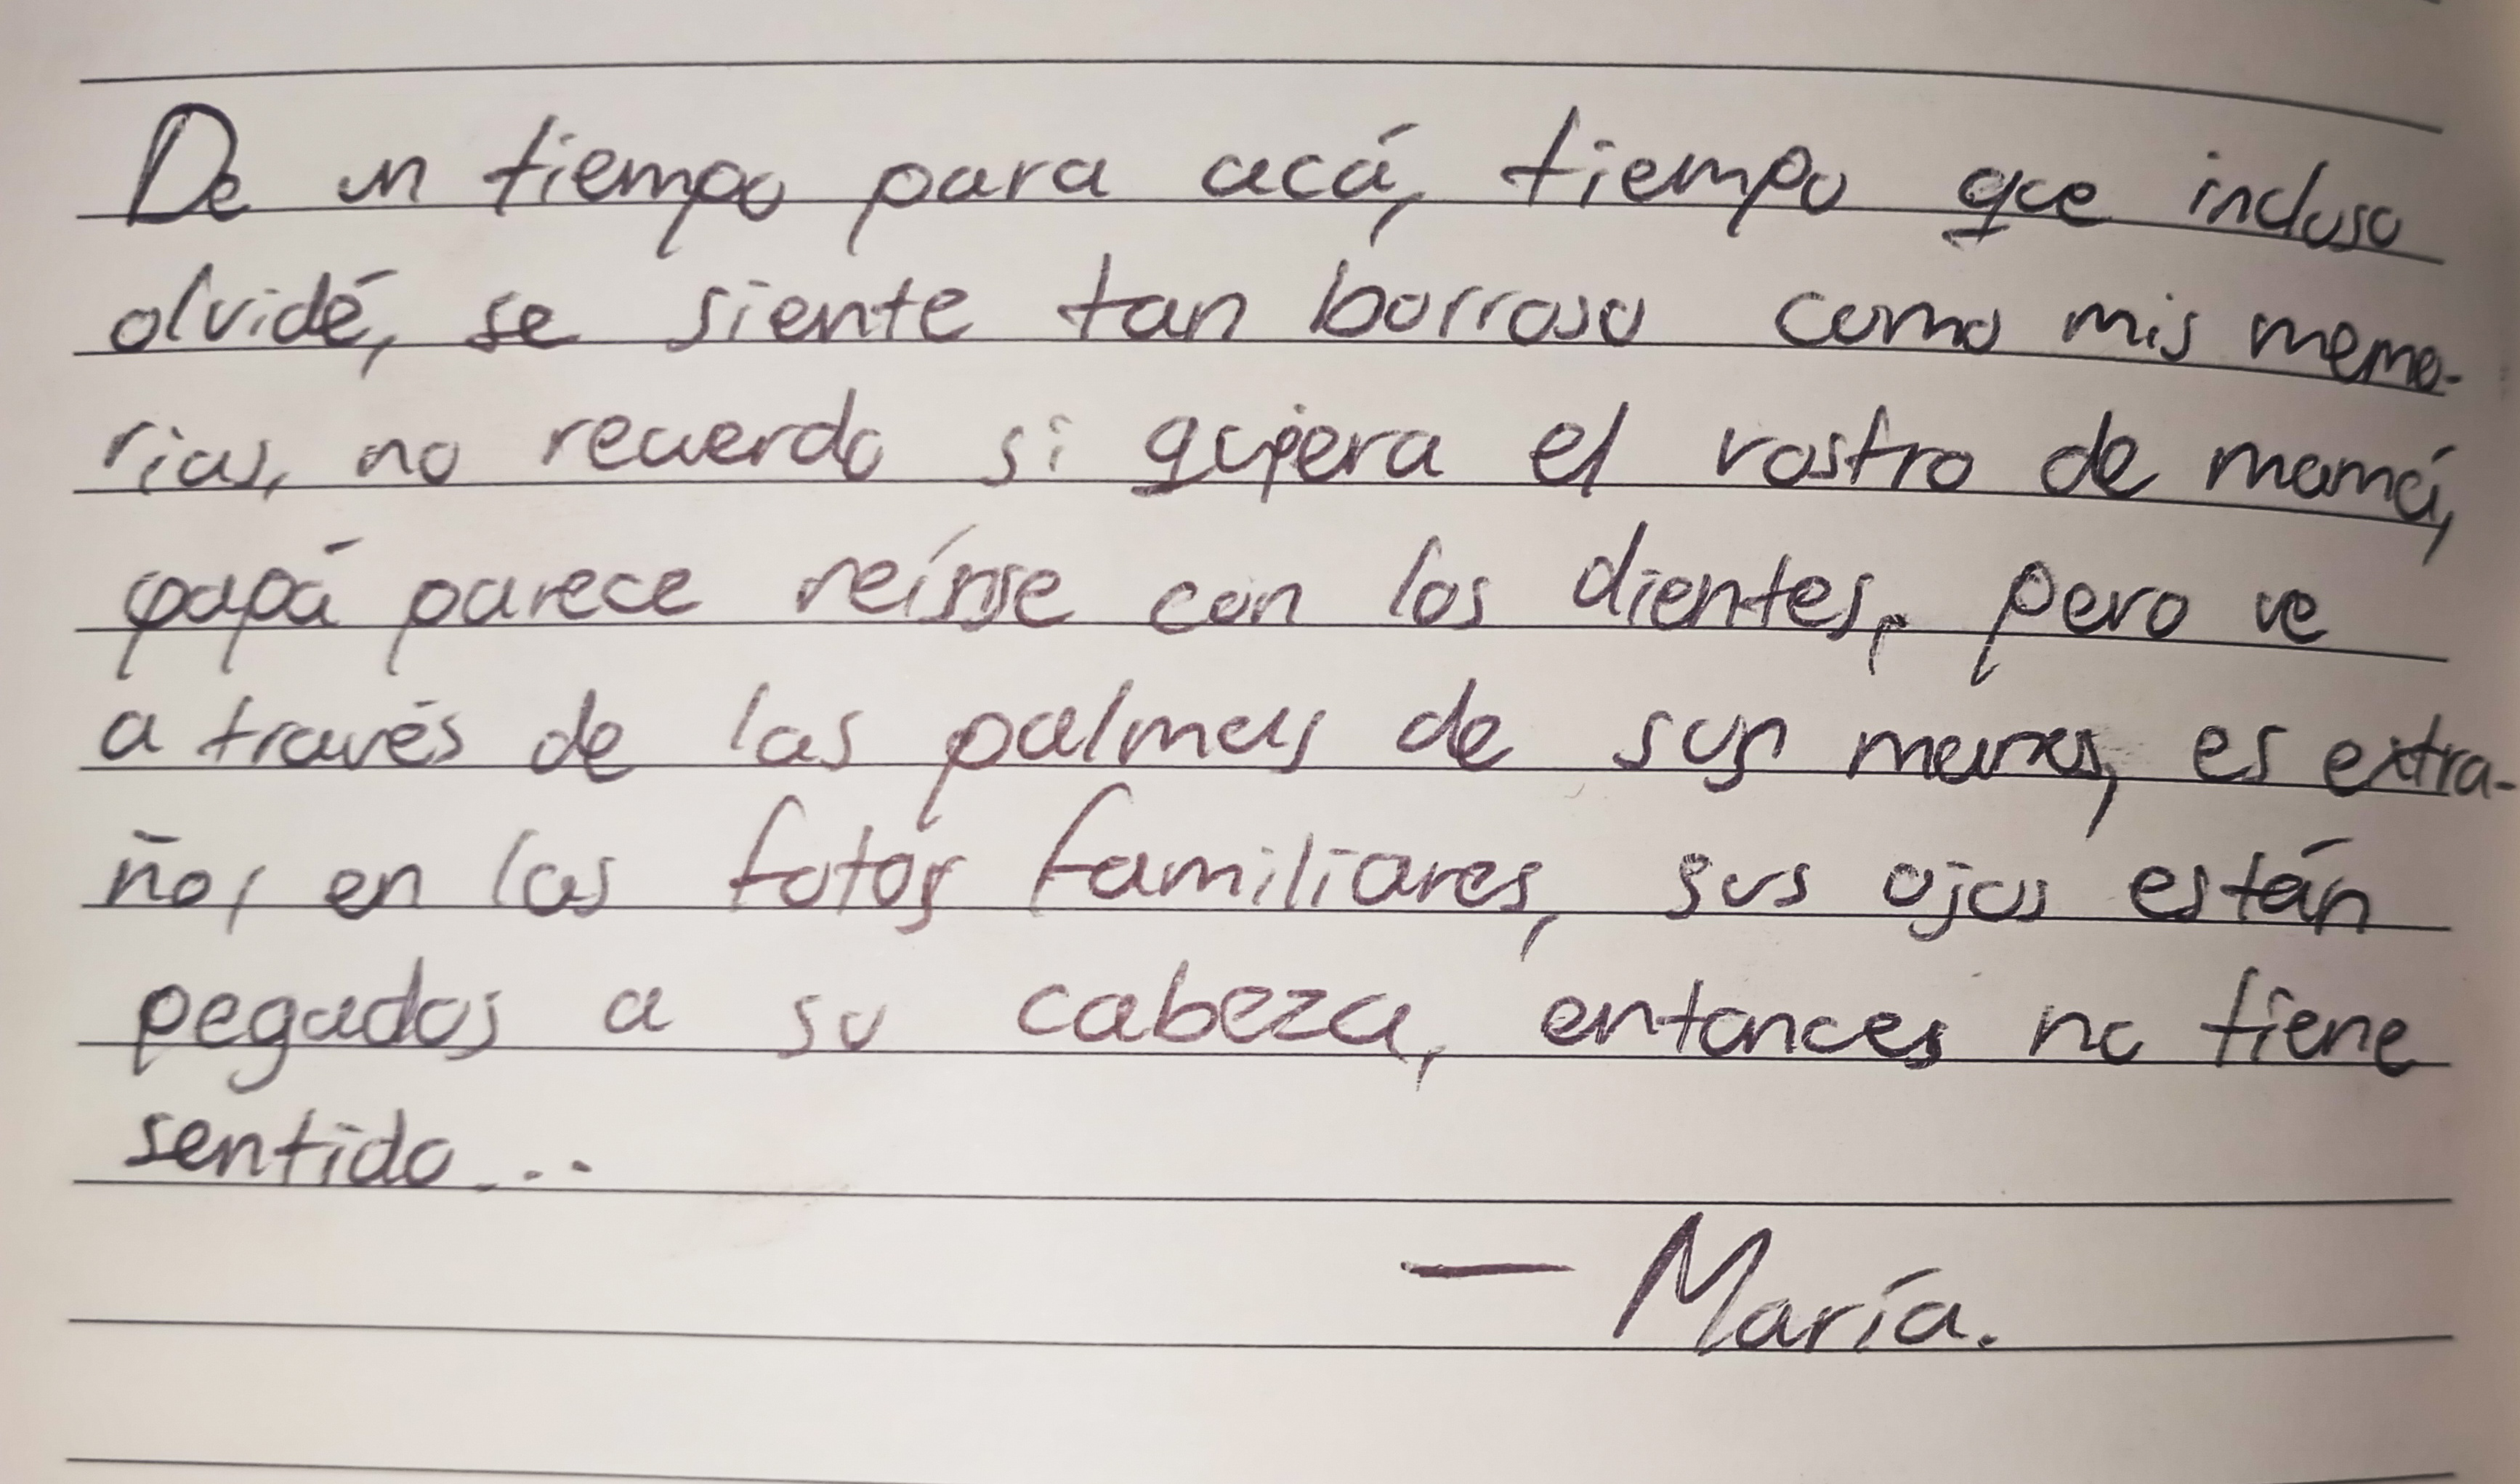 De un tiempo para acá, tiempo que incluso
olvidé, se siente tan borroso como mis memo-
rias, no recuerdo si quiera el rostro de mamá,
papá parece reírse con los dientes, pero ve
a través de las palmas de sus manos, es extra-
ño, en las fotos familiares, sus ojos están
pegados a su cabeza, entonces no tiene
sentido...
— María.